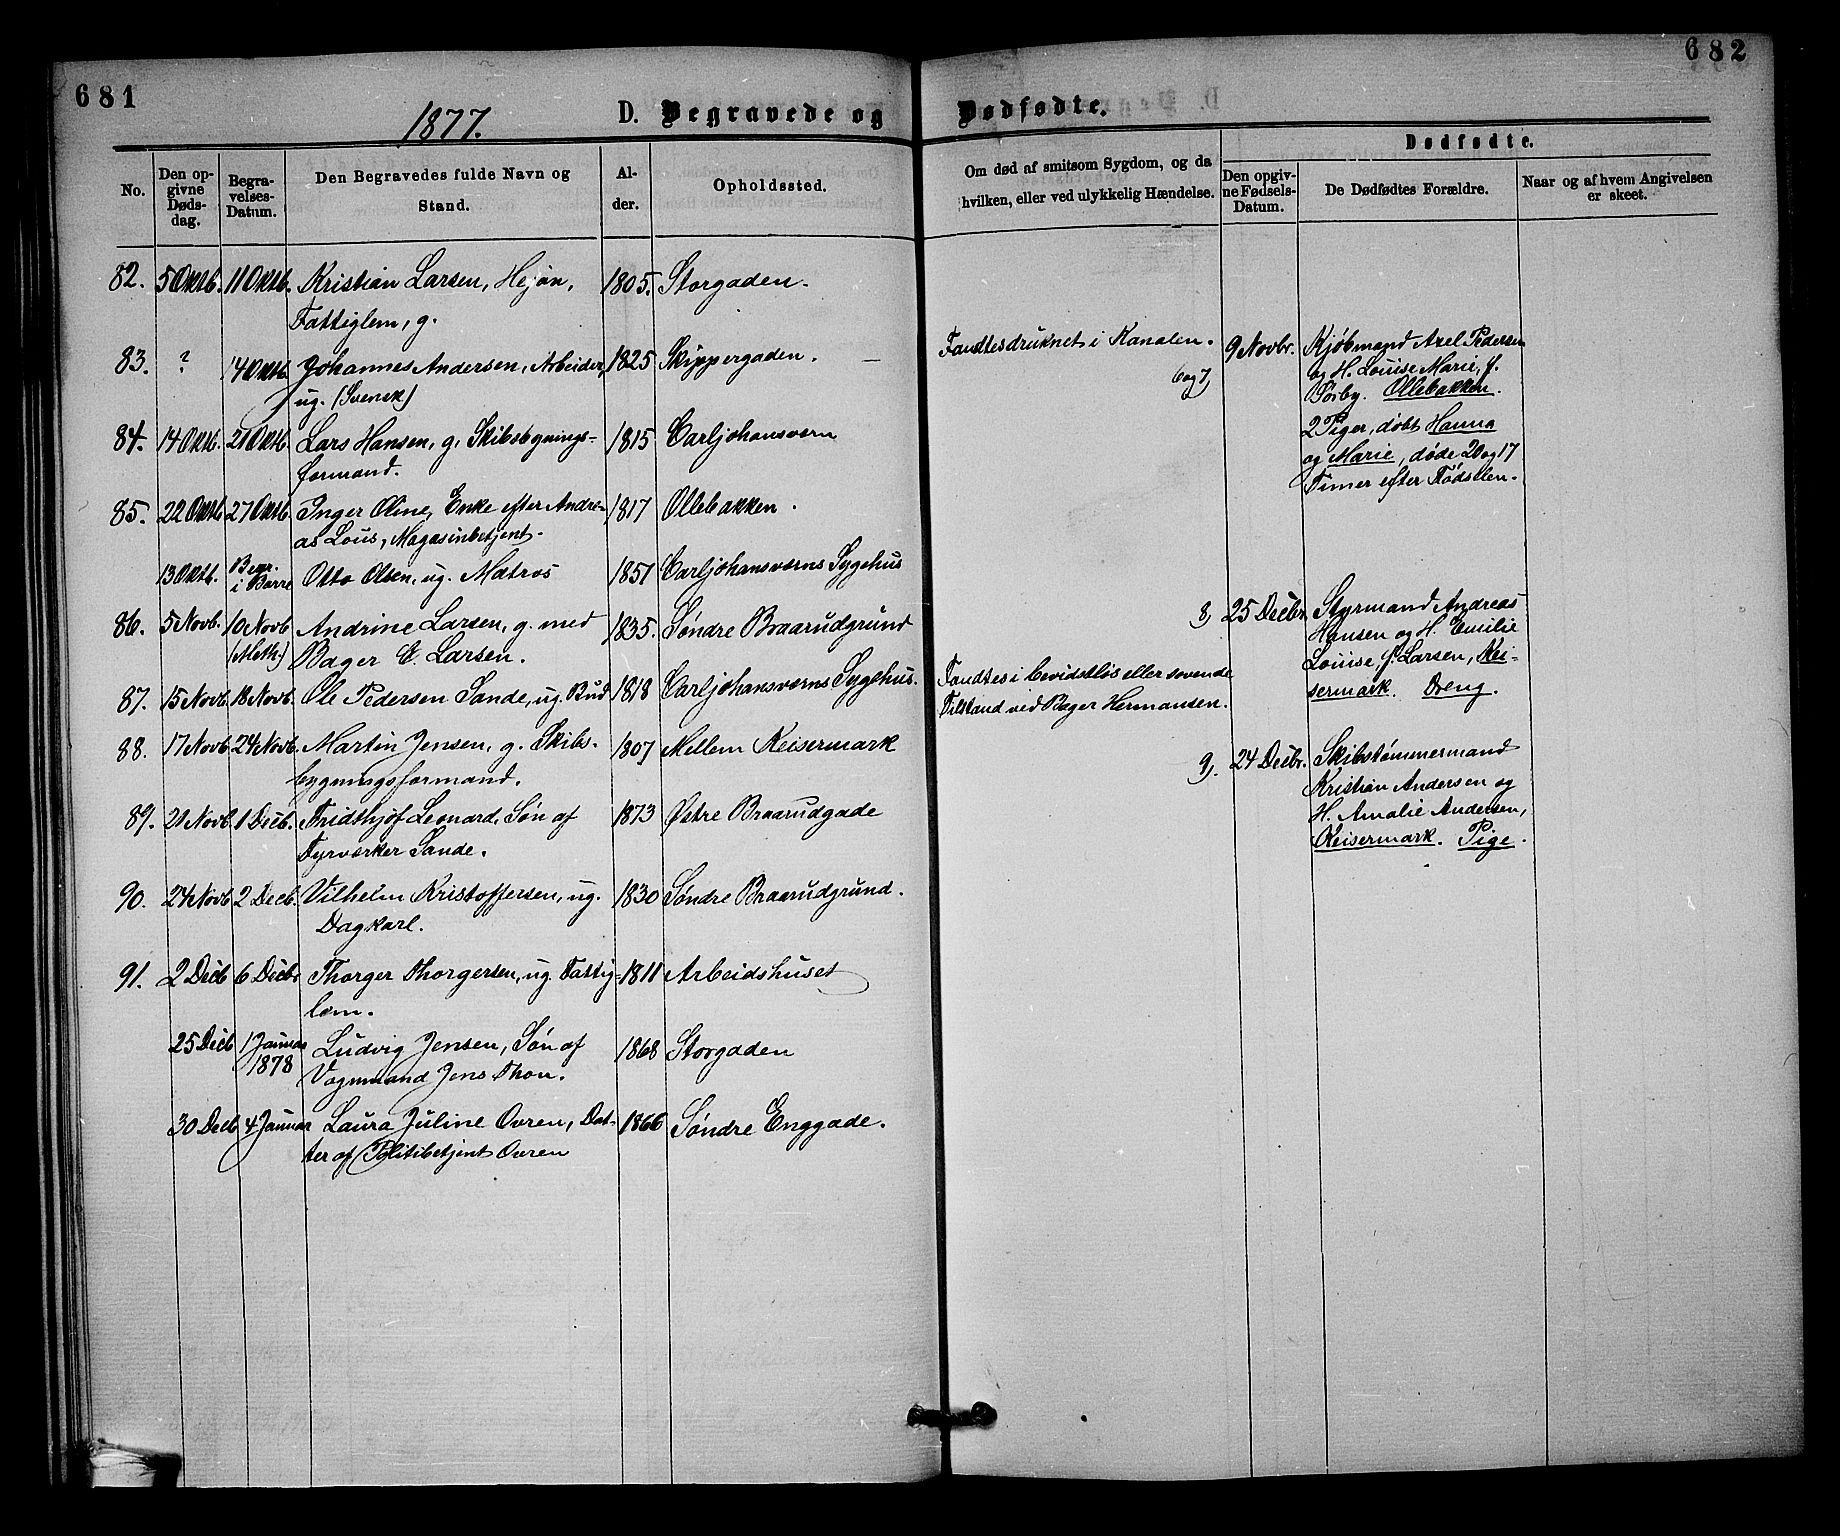 681
682
1877.
D. Begravede og Dødfødte.
No.
Den opgivne Dødsdag.
Begravelses-Datum.
Den Begravedes fulde Navn og Stand.
Alder.
Opholdssted.
Om død af smitsom Sygdom, og da hvilken, eller ved ulykkelig Hændelse.
Dødfødte.
Den opgivne Fødsels-Datum.
De Dødfødtes Forældre.
Naar og af hvem Angivelsen er skeet.
82. 5 Oktb. 11 Oktb. Kristian Larsen, Hejön, 1805. Storgaden.
Fattiglem, g.
83. ? 14 Oktb. Johannes Andersen, Arbeider, 1825 Skippergaden. —
ug. (Svensk)
84. 14 Oktb. 21 Oktb. Lars Hansen, g. Skibsbygnings- 1815 Carljohansværn
formand.
85. 22 Oktb 27 Oktb. Inger Oline, Enke efter Andre- 1817 Ollebakken.
as Lous, Magasinbetjent.
13 Oktb. Begr. i Borre Otto Olsen, ug. Matros 1851 Carljohansværns Sygehus
86. 5 Novb. 10 Novb Andrine Larsen, g. med 1835. Søndre Braarudgrund
(Meth.) Bager E. Larsen.
87. 15 Novb. 18 Novb. Ole Pedersen Sande, ug. Bud 1818 Carljohansværns Sygehus.
88. 17 Novb. 24 Novb. Martin Jensen, g. Skibs- 1807 Mellem Keisermark
bygningsformand.
89. 21 Novb. 1 Decb. Fridthjof Leonard, Søn af 1873 Østre Braarudgade
Fyrværker Sande.
90. 24 Novb 2 Decb. Vilhelm Kristoffersen, ug. 1830 Søndre Braarudgrund.
Dagkarl.
91. 2 Decb 6 Decbr Thorger Thorgersen, ug. Fattig- 1811 Arbeidshuset
lem.
25 Decb 1 Januar Ludvig Jensen, Søn af 1868 Storgaden
1878 Vognmand Jens Thon.
30 Decb 4 Januar Laura Juline Ovren, Dat- 1866 Søndre Enggade.
ter af Politibetjent Ovren
Fandtes druknet i Kanalen.
6 og 7) 9 Novbr. Kjøbmand Axel Pedersen
og H. Louise Marie, f.
Sörby. Ollebakken.
2 Piger, døbt Hanna
og Marie, døde 20 og 17
Timer efter Fødselen.
8) 25 Decbr. Styrmand Andreas
Hansen og H. Emilie
Louise, f. Larsen, Kei-
sermark. Dreng.
Fandtes i bevidstløs eller sovende
Tilstand ved Bager Hermansen.
9). 24 Decbr. Skibstømmermand
Kristian Andersen og
H. Amalie Andersen,
Keisermark. Pige.